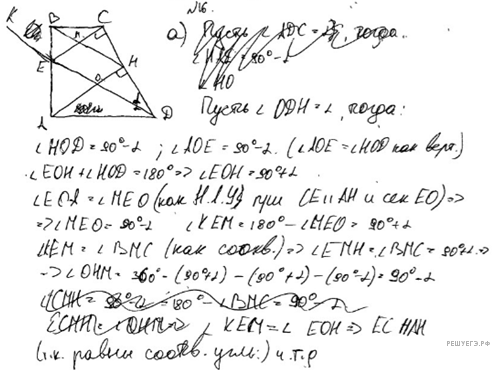 K
B
C
n
E
H
O
A
D
N16.
а) Пусть ∠ADC = , тогда
= 90°-α
∠HO
Пусть ∠ODH = α, тогда:
∠HOD = 90°-α ; ∠AOE = 90°-α. (∠AOE = ∠HOD как верт.)
∠EOH + ∠HOD = 180° => ∠EOH = 90°+α
= ∠MEO (как Н.Л.У) при CE || AH и сек EO) =>
=> ∠MEO = 90°-α ∠KEM = 180° - ∠MEO = 90°+α
∠KEM = ∠BMC (как соотв.) => ∠EMH = ∠BMC = 90°+α =>
-> ∠OHM = 360° - (90°+α) - (90°+α) - (90°-α) = 90°-α
= 180° - ∠BMC = 90°-α
∠KEM = ∠EOH => EC || AH
(т.к. равны соотв. углы.) ч.т.д
РЕШУЕГЭ.РФ